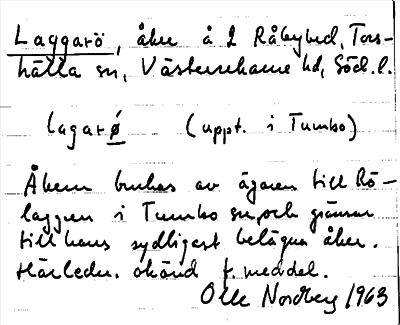 Laggarö, åker å 2 Råbyhed, Tors-
hälla sn, Västerrekarne hd, Söd. l.
lagarǿ (uppt. i Tumbo)
Åkern brukas av ägaren till Rö-
laggren i Tumbo sn, och gränsar
till hans sydligast belägna åker.
Härledn. okänd f. meddel.
Olle Nordberg 1963